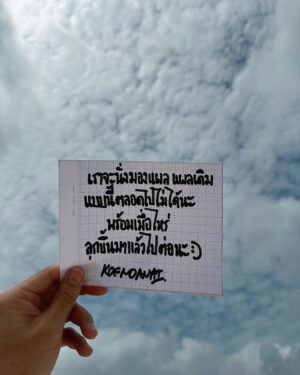 เราจะนั่งมองแผล แผลเดิม
แบบนี้ตลอดไปไม่ได้นะ
พร้อมเมื่อไหร่
ลุกขึ้นมาแล้วไปต่อนะ :)